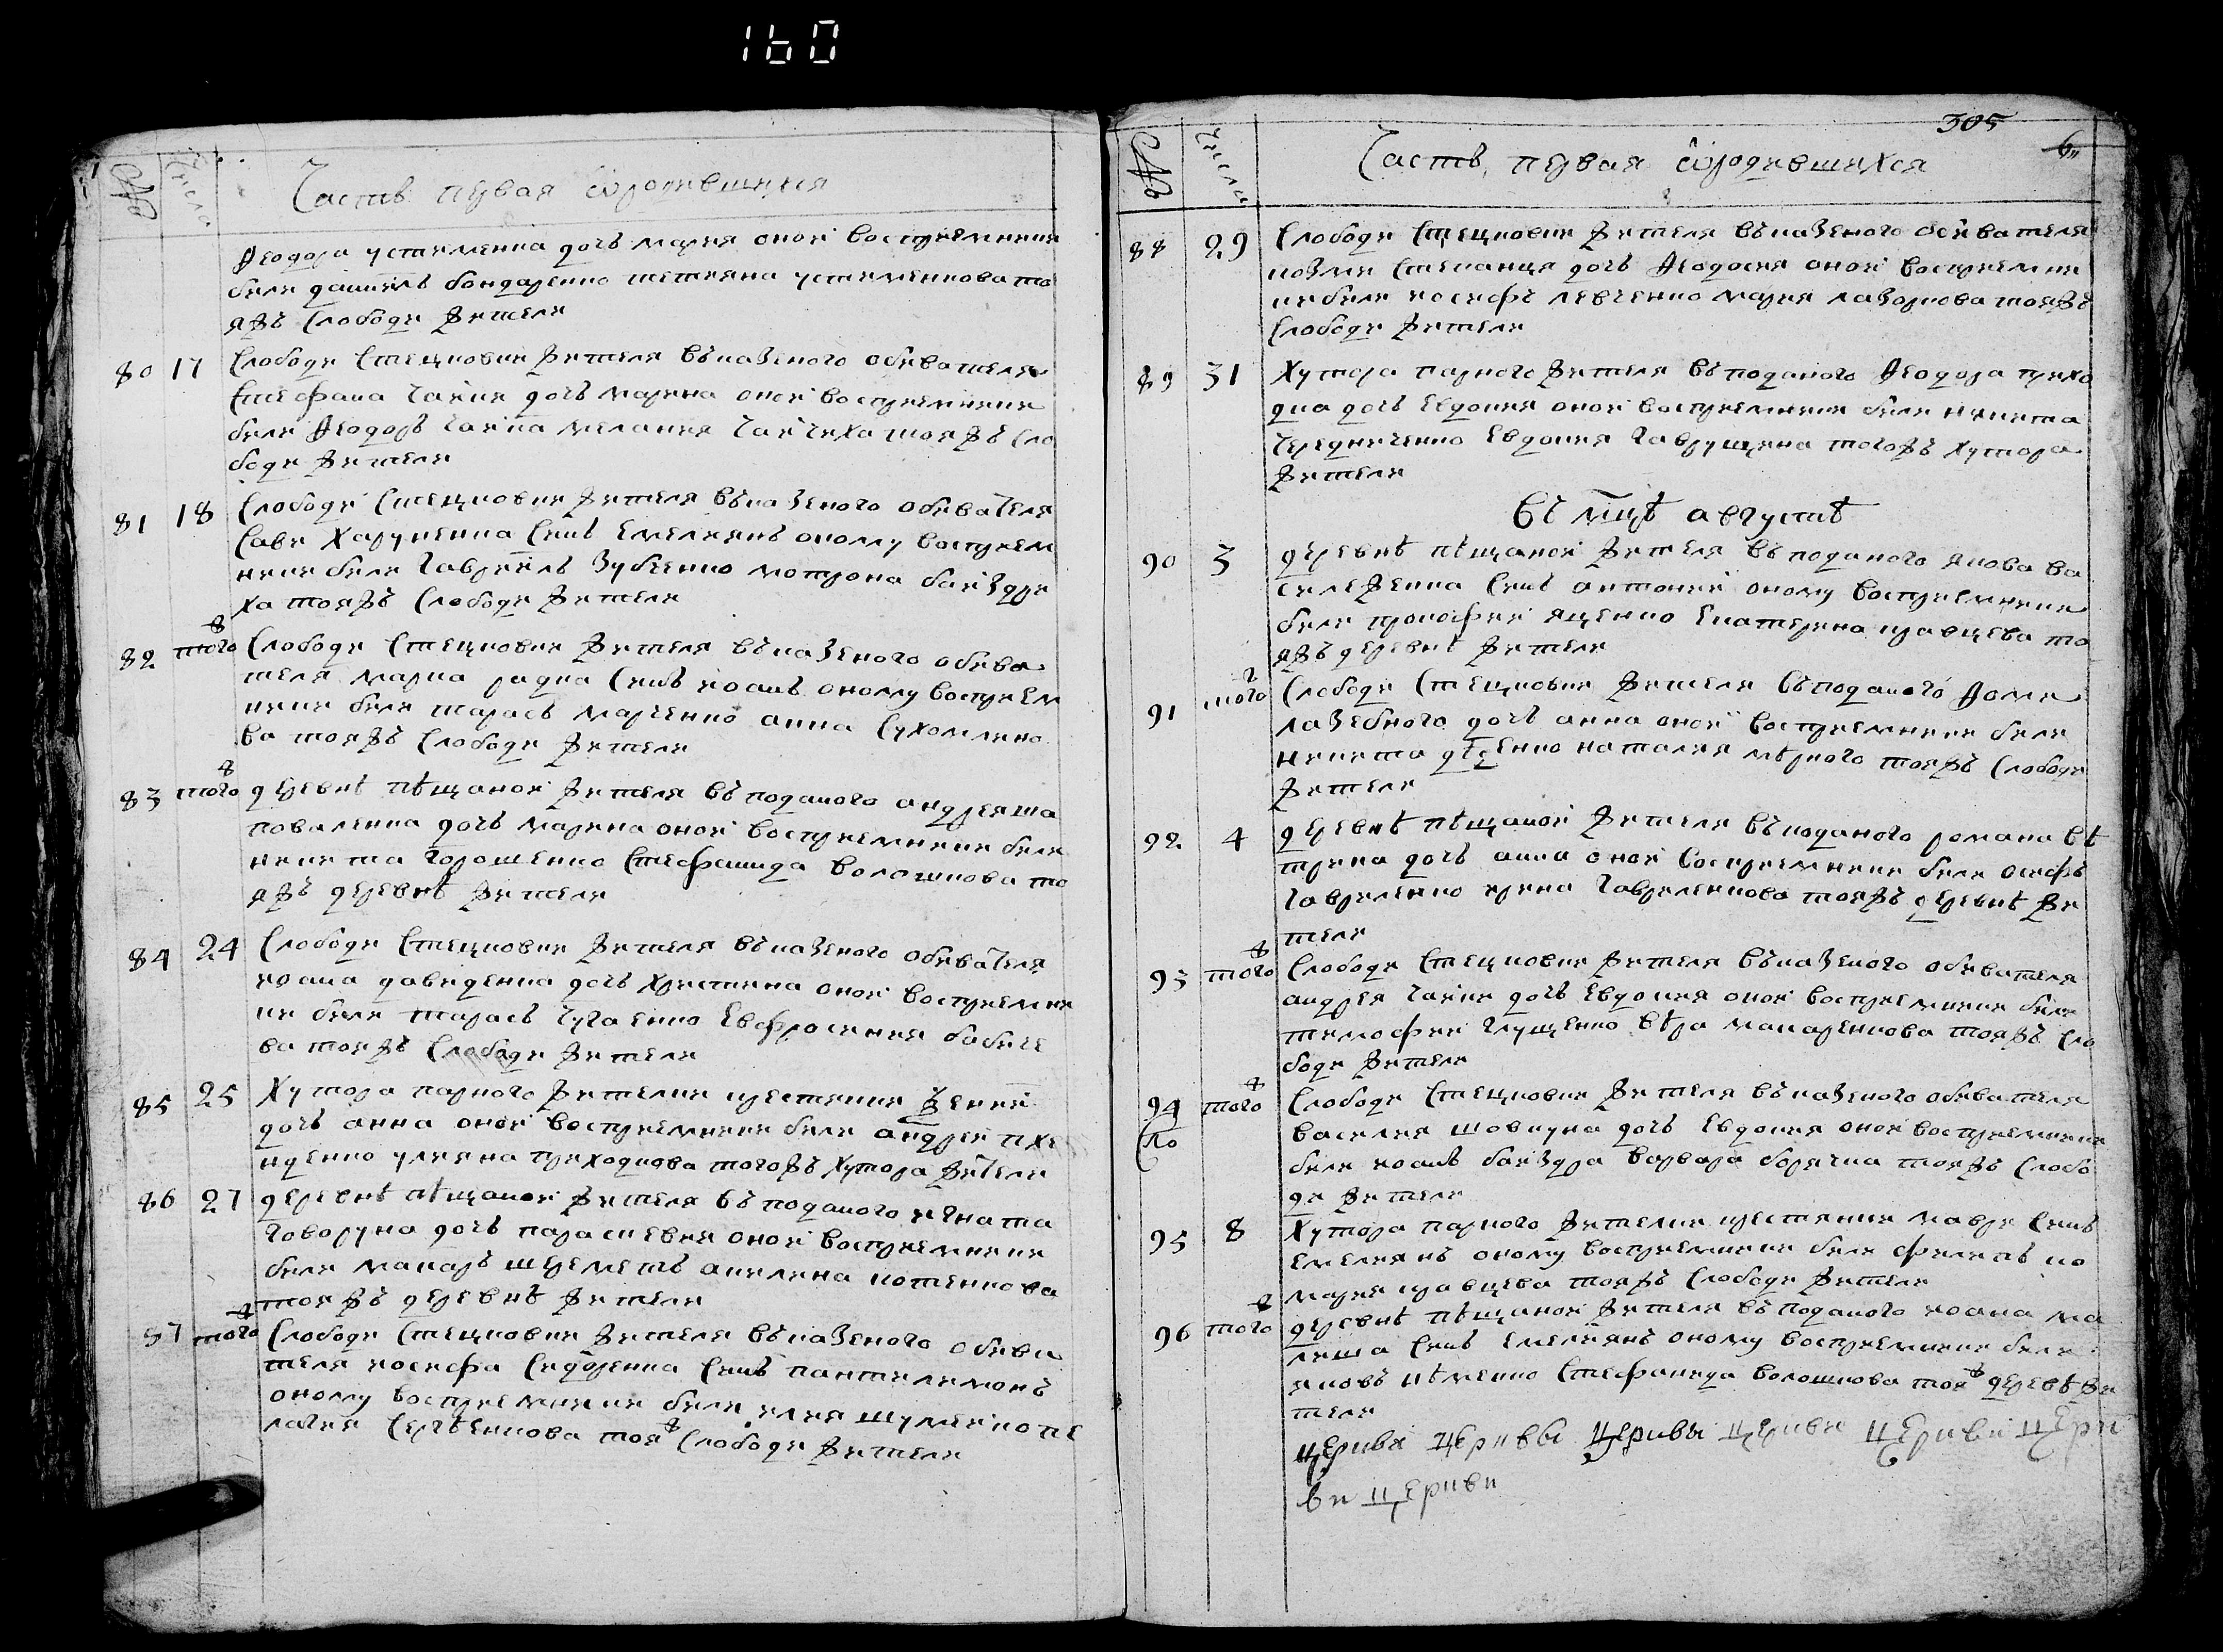 160
№ Числа Часть первая ѡродившихся
Ѳеодора устименка дочь мария оной восприемники
были даниилъ бондаренко тетяна устименкова то
яжъ слободи жители
80 17 Слободи стецковки жителя въказеного обивателя
стефана чайки дочь марина оной восприемники
були ѳеодоръ чайка мелания чайчиха тояжъ сло
боди жители
81 18 Слободи стецковки жителя въказеного обивателя
сави харуненка синъ емелиянъ оному восприем
ники були гавриилъ зубенко мотрона байздри
ха тояжъ слободи жители
82 тогож Слободи стецковки жителя въказеного обива
теля марка радка синъ иоанъ оному восприем
ники були тарасъ марченко анна сухомлино
ва тояжъ слободи жители
83 тогож деревнѣ пѣщаной жителя въподаного андрея ша
поваленка дочь марина оной восприемники були
никита горошенко стефанида волошкова то
яжъ деревнѣ жители
84 24 Слободи стецковки жителя въказеного обивателя
иоана давиденка дочь христина оной восприемни
ки були тарасъ чугаенко евфросиния бабиче
ва тояжъ слободи жители
85 25 Хутора парного жителки крестянки
дочь анна оной восприемники були андрей пхе
нченко улияна приходкова тогожъ хутора жители
86 27 деревнѣ пѣщаной жителя въподаного игната
говоруна дочь параскевия оной восприемники
були макаръ шереметъ акилина котенкова
тояжъ деревнѣ жители
87 тогож Слободи стецковки жителя въказеного обива
теля иосифа сидоренка синъ пантелимонъ
оному восприемники були илия шумейко пе
лагия сергѣенкова тояж слободи жители
305
№ Числа Часть первая ѡродившихся
88 29 Слободи стецковки жителя въказеного обивателя
козми степанця дочь ѳеодосия оной восприемни
ки були иосифъ левченко мария лазоркова тояжъ
слободи жители
89 31 Хутора парного жителя въподаного ѳеодора прихо
дка дочь евдокия оной восприемники були никита
чередниченко евдокия гаврущина тогожъ хутора
жители
въ мцѣ августѣ
90 3 деревнѣ пѣщаной жителя въподаного якова ва
силеженка синъ антоний оному восприемники
були прокофий яценко екатерина кравцева то
яжъ деревнѣ жители
91 тогож Слободи стецковки жителя въподаного ѳоми
лазебного дочь анна оной восприемники були
никита дѣденко наталия мѣрного тояжъ слободи
жители
92 4 деревнѣ пѣщаной жителя въподаного романа вѣ
трика дочь анна оной восприемники були осифъ
гавриленко ирина гавриленкова тояжъ деревнѣ жи
тели
93 тогож Слободи стецковки жителя въказеного обивателя
андрея чайки дочь евдокия оной восприемники були
тимофий глущенко вѣра макаренкова тояжъ сло
боди жители
94 тогож Слободи стецковки жителя въказеного обивателя
ло василия шовкуна дочь евдокия оной восприемники
були иоанъ байздра варвара борячка тояжъ слобо
ди жители
95 8 Хутора парного жителки крестянки маври синъ
емелиянъ оному восприемники були филипъ ко
мария кравцева тояжъ слободи жители
96 тогож деревнѣ пѣщаной жителя въподаного иоана ма
лиша синъ емелиянъ оному восприемники були
яковъ нѣменко стефанида волошкова тояж деревѣ жи
тели
церкви церквы церквы церкви церкви церк
ви церкви